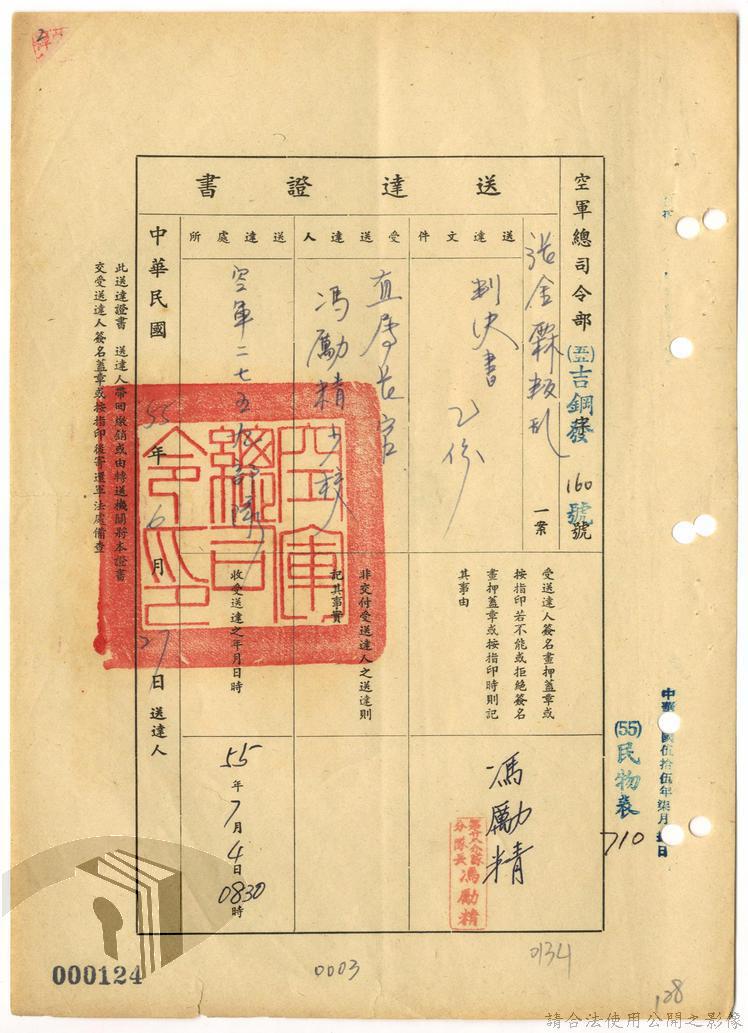 送達證書
空軍總司令部
(55)吉鋼發
160
號
號
張金霖叛亂
一案
送達文件
判決書
乙份
受送達人
直屬長官
馮勵精少校
送達處所
空軍二七五
受送達人簽名畫押蓋章或
按指印若不能或拒絕簽名
畫押蓋章或按指印時則記
其事由
馮勵精
分隊長 馮勵精
非交付受送達人之送達則
記其事實
收受送達之年月日時
55年7月4日0830時
中華民國55年6月27日 送達人
空軍總司令印
此送達證書 送達人帶回繳銷或由轉送機關將本證書
交受送達人簽名蓋章或按指印後寄還軍法處備查
(55)民物表
710
000124
0003
0134
128
請合法使用公開之影像